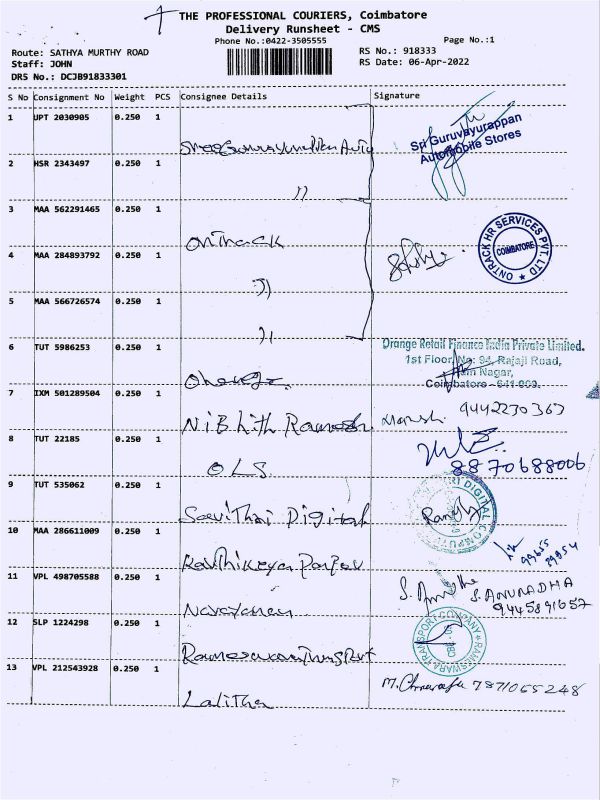 THE PROFESSIONAL COURIERS, Coimbatore
Delivery Runsheet - CMS
Phone No.:0422-3505555 Page No.:1
Route: SATHYA MURTHY ROAD RS No.: 918333
Staff: JOHN RS Date: 06-Apr-2022
DRS No.: DCJB91833301
S No Consignment No Weight PCS Consignee Details Signature
1 UPT 2030905 0.250 1
Sri Guruvayurappan
Automobile Stores
2 HSR 2343497 0.250 1
"
3 MAA 562291465 0.250 1
Ontrack
ONTRACK HR SERVICES PVT. LTD
COIMBATORE
4 MAA 284893792 0.250 1
"
5 MAA 566726574 0.250 1
"
6 TUT 5986253 0.250 1
Orange Retail Finance India Private Limited.
1st Floor, No: 94, Rajaji Road,
Ram Nagar,
Coimbatore - 641 009.
7 IXM 501289504 0.250 1
9442230363
8 TUT 22185 0.250 1
OLS
8870688006
9 TUT 535062 0.250 1
Digital
10 MAA 286611009 0.250 1
11 VPL 498705588 0.250 1
Narayanan
S. ANURADHA
9445891657
12 SLP 1224298 0.250 1
13 VPL 212543928 0.250 1
Lalitha
7871065248